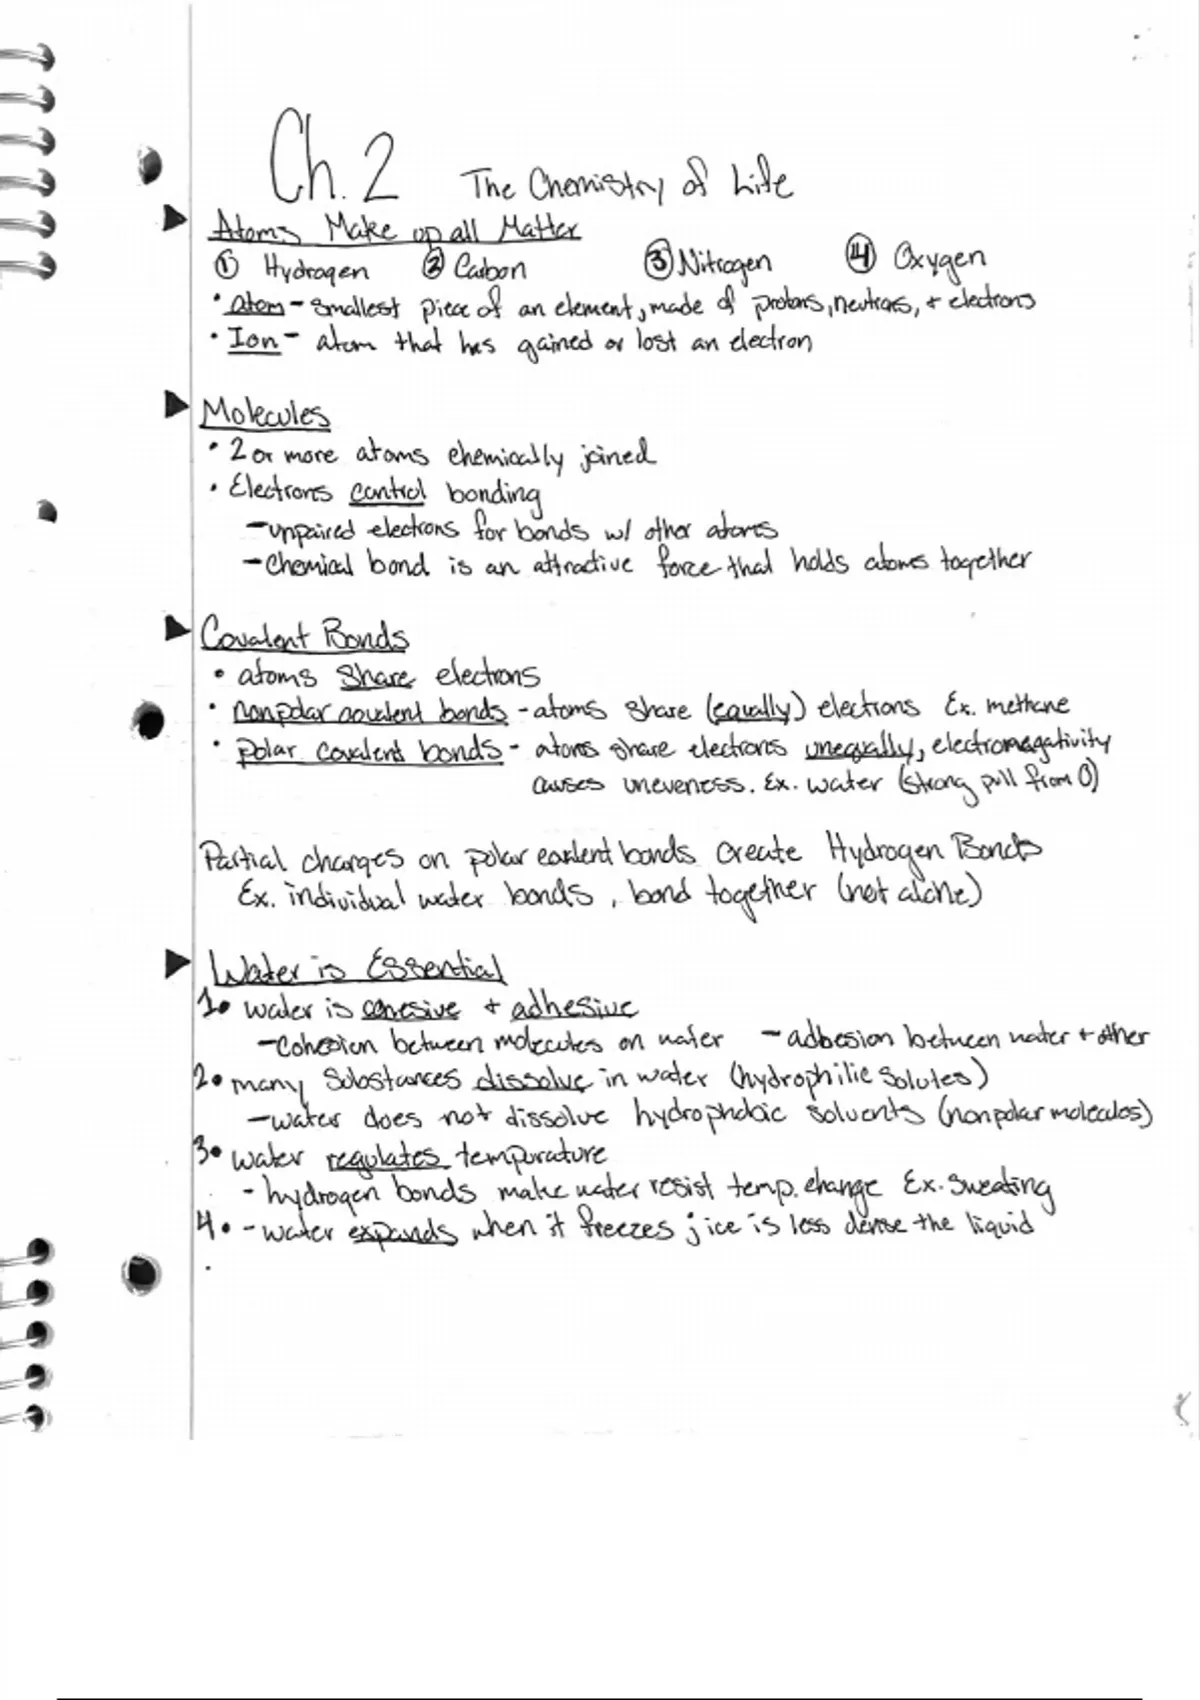 Ch. 2 The Chemistry of Life
Atoms Make up all Matter
① Hydrogen ② Carbon ③ Nitrogen ④ Oxygen
• atom - smallest piece of an element, made of protons, neutrons, + electrons
• Ion - atom that has gained or lost an electron
Molecules
• 2 or more atoms chemically joined
• Electrons control bonding
- unpaired electrons for bonds w/ other atoms
- Chemical bond is an attractive force that holds atoms together
Covalent Bonds
• atoms share electrons
• nonpolar covalent bonds - atoms share (equally) electrons Ex. methane
• polar covalent bonds - atoms share electrons unequally, electronegativity
causes uneveness. Ex. water (strong pull from O)
Partial charges on polar bonds create Hydrogen Bonds
Ex. individual water bonds, bond together (not alone)
Water is Essential
1• water is cohesive + adhesive
- Cohesion between molecules on water - adhesion between water + other
2• many Substances dissolve in water (hydrophilic Solutes)
- water does not dissolve hydrophobic solvents (nonpolar molecules)
3• water regulates temperature
- hydrogen bonds make water resist temp. change Ex. Sweating
4• - water expands when it freezes; ice is less dense the liquid